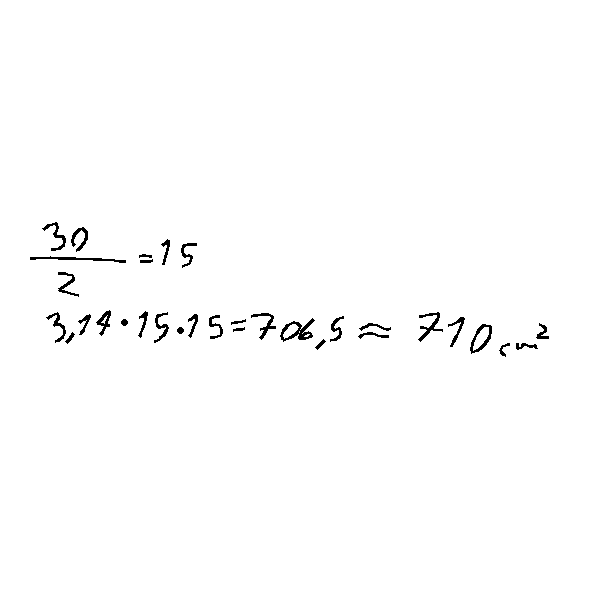 30/2 = 15
3,14 · 15 · 15 = 706,5 ≈ 710 cm²